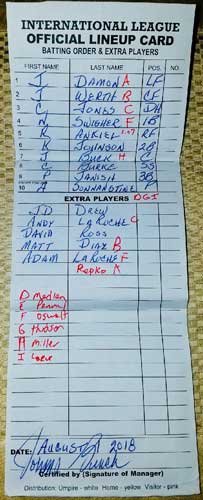 INTERNATIONAL LEAGUE
OFFICIAL LINEUP CARD
BATTING ORDER & EXTRA PLAYERS
FIRST NAME LAST NAME POS. NO.
1 J DAMON A LF
2 J WERTH B CF
3 C JONES C DH
4 N SWISHER F 1B
5 R ANKIEL RF
6 K JOHNSON 2B
7 J BUCK H C
8 C BURKE SS
9 P JANISH 3B
10 A SONNANSTINE P
EXTRA PLAYERS DGI
JD DREW
ANDY LAROCHE C
DAVID ROSS
MATT DIAZ B
ADAM LAROCHE F
REPKO A
D Medlen
E Penny
F Oswalt
G Hudson
H Miller
I Loewe
DATE: AUGUST 2018
Certified by (Signature of Manager)
Distribution: Umpire - white Home - yellow Visitor - pink